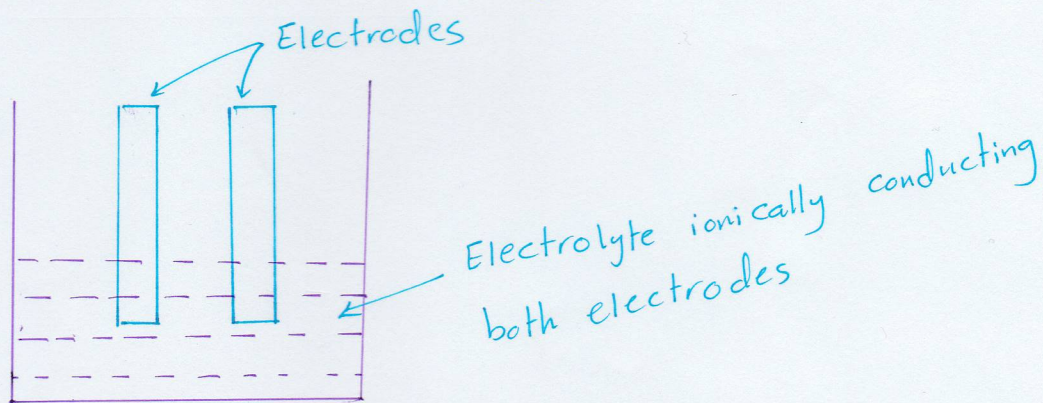 Electrodes
Electrolyte ionically conducting
both electrodes